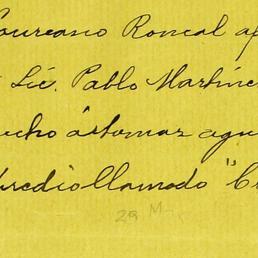 Laureano Roncal ap
Lic. Pablo Martíne
echo á tomar agu
predio llamado "Cr
29 M